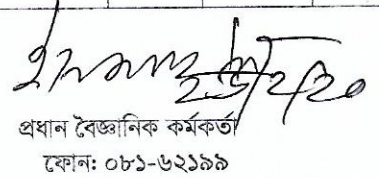 প্রধান বৈজ্ঞানিক কর্মকর্তা
ফোন: ০৮১-৬২১৯৯